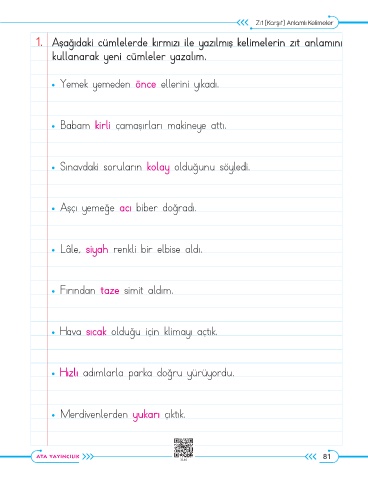 Zıt (Karşıt) Anlamlı Kelimeler
1. Aşağıdaki cümlelerde kırmızı ile yazılmış kelimelerin zıt anlamını
kullanarak yeni cümleler yazalım.
• Yemek yemeden önce ellerini yıkadı.
• Babam kirli çamaşırları makineye attı.
• Sınavdaki soruların kolay olduğunu söyledi.
• Aşçı yemeğe acı biber doğradı.
• Lâle, siyah renkli bir elbise aldı.
• Fırından taze simit aldım.
• Hava sıcak olduğu için klimayı açtık.
• Hızlı adımlarla parka doğru yürüyordu.
• Merdivenlerden yukarı çıktık.
ATA YAYINCILIK
81